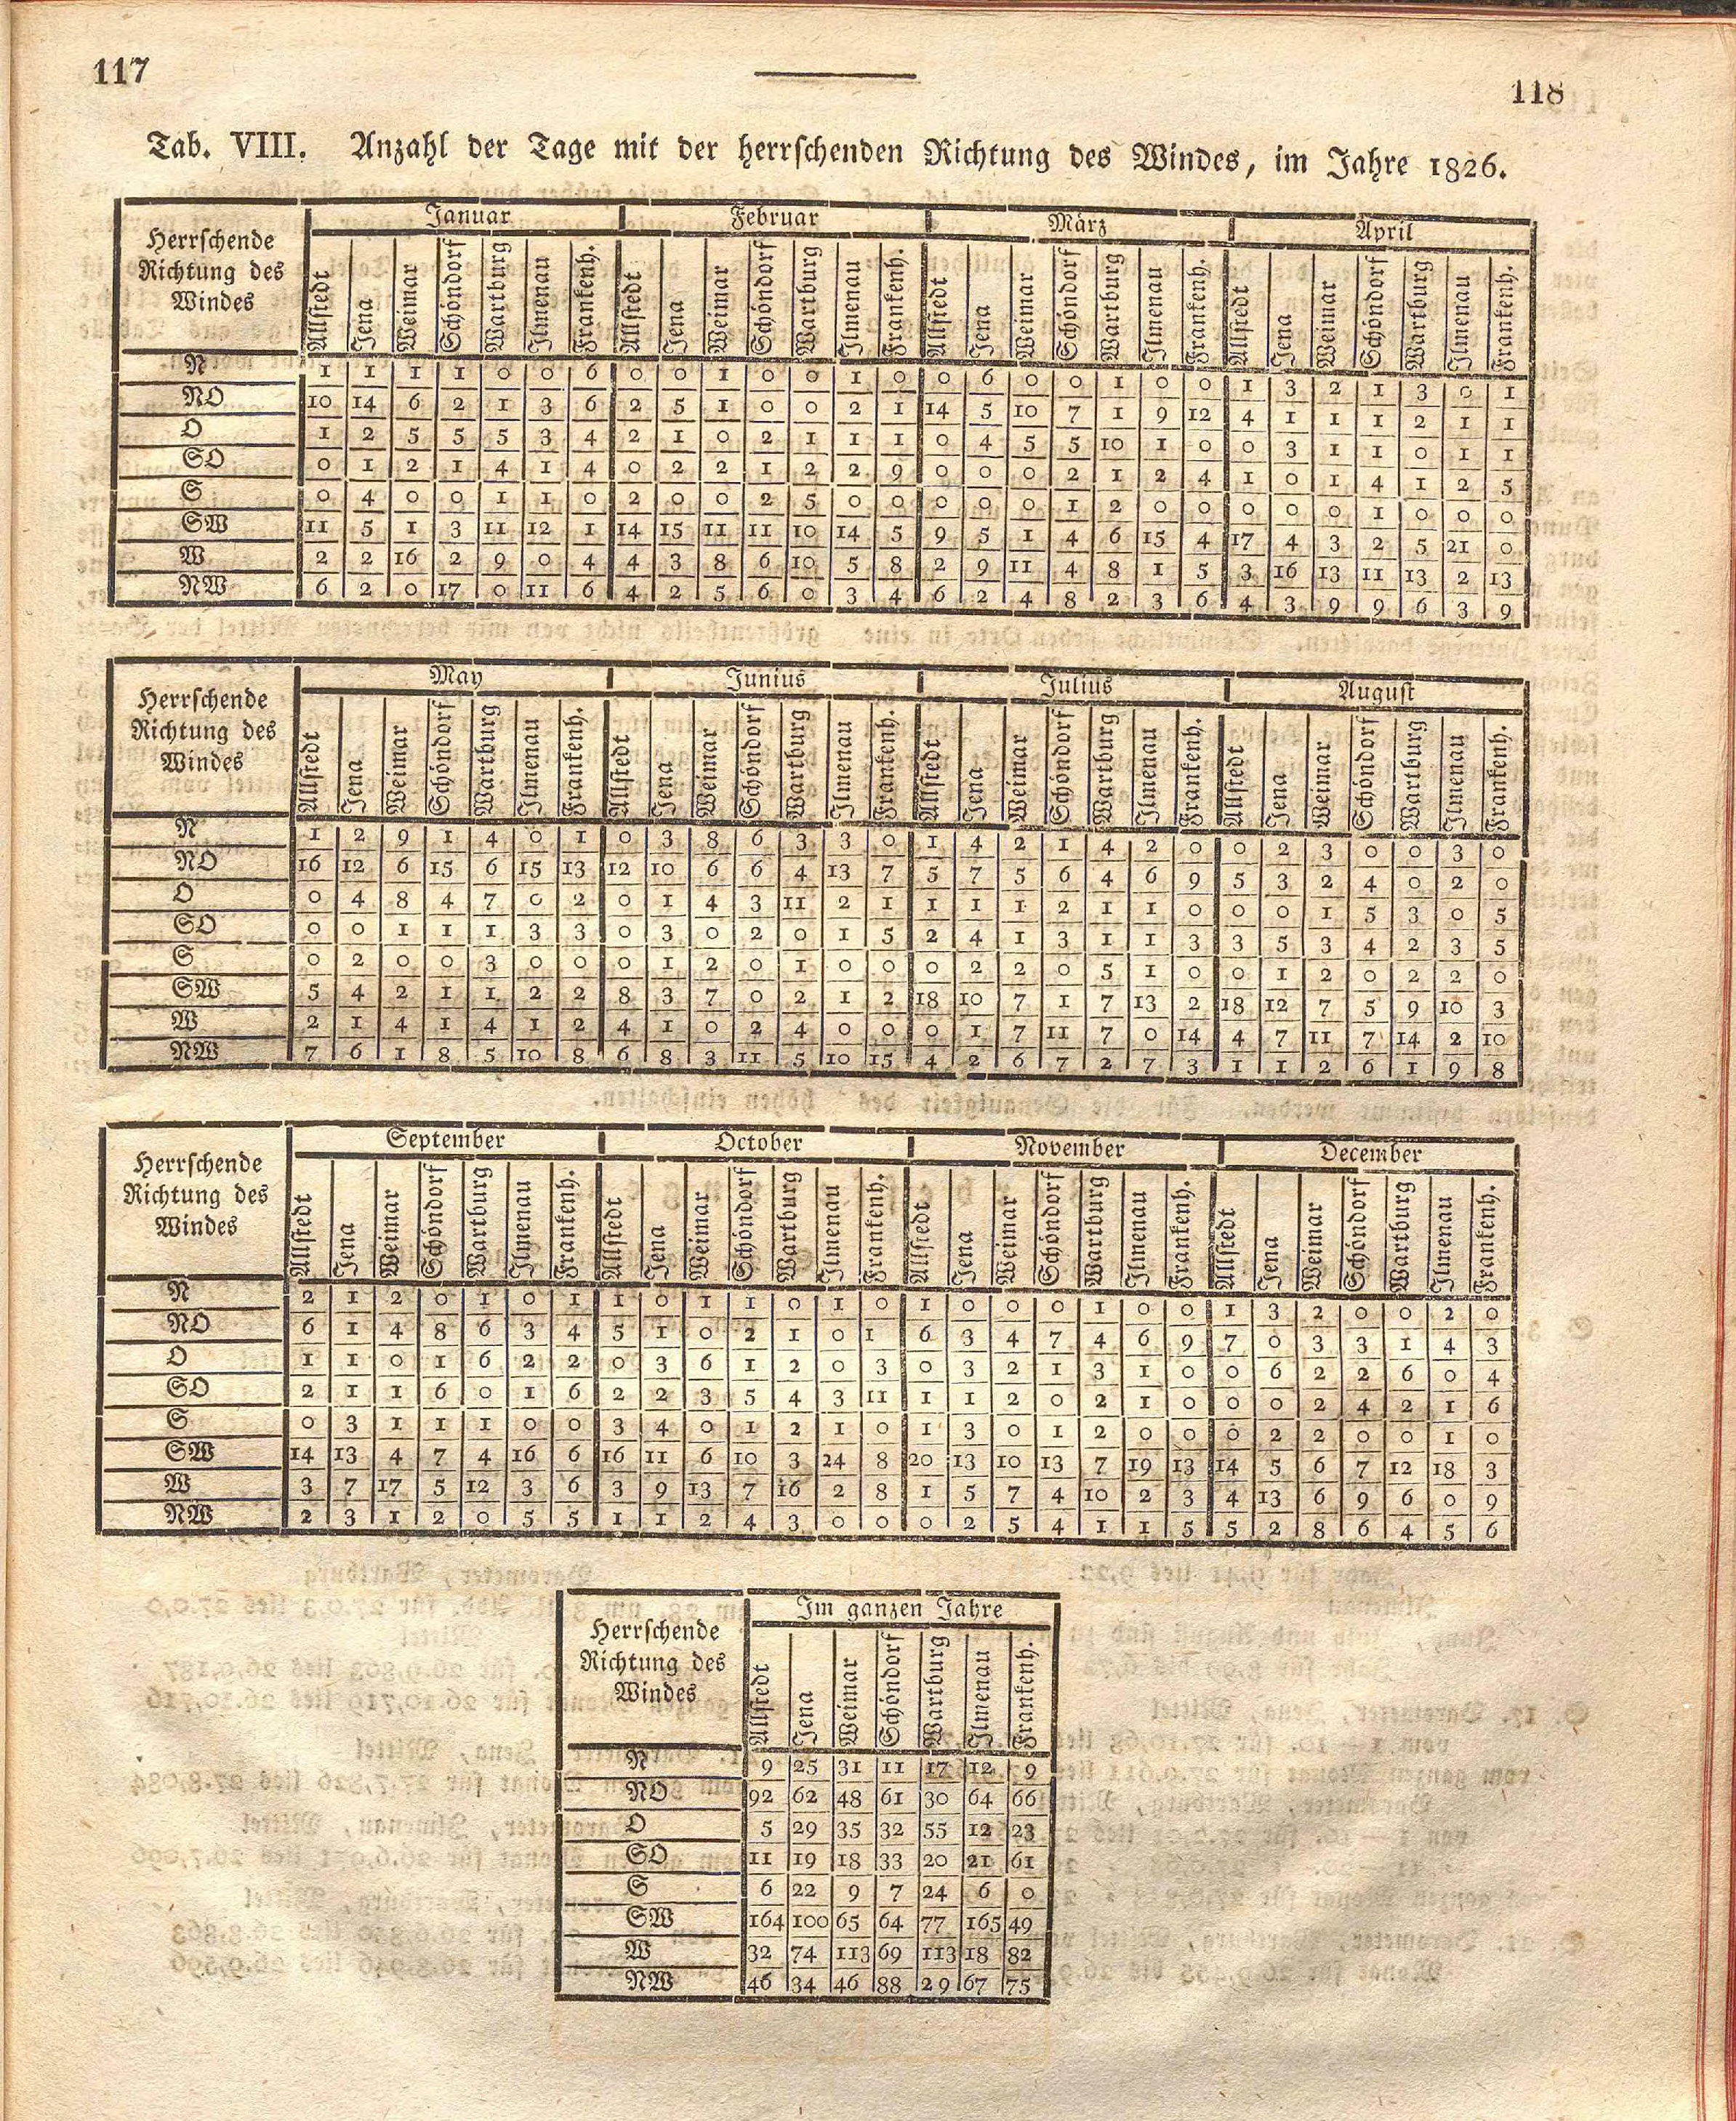 117
118
Tab. VIII. Anzahl der Tage mit der herrschenden Richtung des Windes, im Jahre 1826.
Herrschende Richtung des Windes | Januar | Februar | März | April
Allstedt Jena Weimar Schöndorf Wartburg Ilmenau Frankenh. Allstedt Jena Weimar Schöndorf Wartburg Ilmenau Frankenh. Allstedt Jena Weimar Schöndorf Wartburg Ilmenau Frankenh. Allstedt Jena Weimar Schöndorf Wartburg Ilmenau Frankenh.
N 1 1 1 1 0 0 6 0 0 1 0 0 1 0 0 6 0 0 1 0 0 1 3 2 1 3 0 1
NO 10 14 6 2 1 3 6 2 5 1 0 0 2 1 14 5 10 7 1 9 12 4 1 1 1 2 1 1
O 1 2 5 5 5 3 4 2 1 0 2 1 1 1 0 4 5 5 10 1 0 0 3 1 1 0 1 1
SO 0 1 2 1 4 1 4 0 2 2 1 2 2 9 0 0 0 2 1 2 4 1 0 1 4 1 2 5
S 0 4 0 0 1 1 0 2 0 0 2 5 0 0 0 0 0 1 2 0 0 0 0 0 1 0 0 0
SW 11 5 1 3 11 12 1 14 15 11 11 10 14 5 9 5 1 4 6 15 4 17 4 3 2 5 21 0
W 2 2 16 2 9 0 4 4 3 8 6 10 5 8 2 9 11 4 8 1 5 3 16 13 11 13 2 13
NW 6 2 0 17 0 11 6 4 2 5 6 0 3 4 6 2 4 8 2 3 6 4 3 9 9 6 3 9
Herrschende Richtung des Windes | May | Junius | Julius | August
Allstedt Jena Weimar Schöndorf Wartburg Ilmenau Frankenh. Allstedt Jena Weimar Schöndorf Wartburg Ilmenau Frankenh. Allstedt Jena Weimar Schöndorf Wartburg Ilmenau Frankenh. Allstedt Jena Weimar Schöndorf Wartburg Ilmenau Frankenh.
N 1 2 9 1 4 0 1 0 3 8 6 3 3 0 1 4 2 1 4 2 0 0 2 3 0 0 3 0
NO 16 12 6 15 6 15 13 12 10 6 6 4 13 7 5 7 5 6 4 6 9 5 3 2 4 0 2 0
O 0 4 8 4 7 0 2 0 1 4 3 11 2 1 1 1 1 2 1 1 0 0 0 1 5 3 0 5
SO 0 0 1 1 1 3 3 0 3 0 2 0 1 5 2 4 1 3 1 1 3 3 5 3 4 2 3 5
S 0 2 0 0 3 0 0 0 1 2 0 1 0 0 0 2 2 0 5 1 0 0 1 2 0 2 2 0
SW 5 4 2 1 1 2 2 8 3 7 0 2 1 2 18 10 7 1 7 13 2 18 12 7 5 9 10 3
W 2 1 4 1 4 1 2 4 1 0 2 4 0 0 0 1 7 11 7 0 14 4 7 11 7 14 2 10
NW 7 6 1 8 5 10 8 6 8 3 11 5 10 15 4 2 6 7 2 7 3 1 1 2 6 1 9 8
Herrschende Richtung des Windes | September | October | November | December
Allstedt Jena Weimar Schöndorf Wartburg Ilmenau Frankenh. Allstedt Jena Weimar Schöndorf Wartburg Ilmenau Frankenh. Allstedt Jena Weimar Schöndorf Wartburg Ilmenau Frankenh. Allstedt Jena Weimar Schöndorf Wartburg Ilmenau Frankenh.
N 2 1 2 0 1 0 1 1 0 1 1 0 1 0 1 0 0 0 1 0 0 1 3 2 0 0 2 0
NO 6 1 4 8 6 3 4 5 1 0 2 1 0 1 6 3 4 7 4 6 9 7 0 3 3 1 4 3
O 1 1 0 1 6 2 2 0 3 6 1 2 0 3 0 3 2 1 3 1 0 0 6 2 2 6 0 4
SO 2 1 1 6 0 1 6 2 2 3 5 4 3 11 1 1 2 0 2 1 0 0 0 2 4 2 1 6
S 0 3 1 1 1 0 0 3 4 0 1 2 1 0 1 3 0 1 2 0 0 0 2 2 0 0 1 0
SW 14 13 4 7 4 16 6 16 11 6 10 3 24 8 20 13 10 13 7 19 13 14 5 6 7 12 18 3
W 3 7 17 5 12 3 6 3 9 13 7 16 2 8 1 5 7 4 10 2 3 4 13 6 9 6 0 9
NW 2 3 1 2 0 5 5 1 1 2 4 3 0 0 0 2 5 4 1 1 5 5 2 8 6 4 5 6
Herrschende Richtung des Windes | Im ganzen Jahre
Allstedt Jena Weimar Schöndorf Wartburg Ilmenau Frankenh.
N 9 25 31 11 17 12 9
NO 92 62 48 61 30 64 66
O 5 29 35 32 55 12 23
SO 11 19 18 33 20 21 61
S 6 22 9 7 24 6 0
SW 164 100 65 64 77 165 49
W 32 74 113 69 113 18 82
NW 46 34 46 88 29 67 75